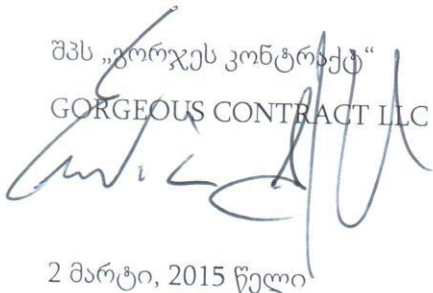 შპს „გორჯეს კონტრაქტ“
GORGEOUS CONTRACT LLC
2 მარტი, 2015 წელი